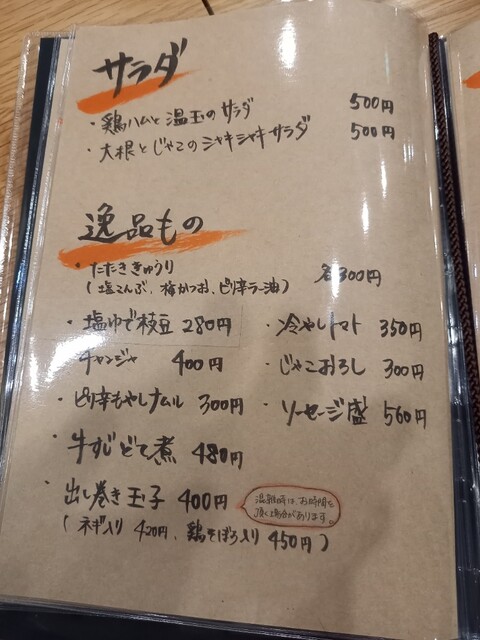 サラダ
・鶏ハムと温玉のサラダ 500円
・大根とじゃこのシャキシャキサラダ 500円
逸品もの
・たたききゅうり 各300円
(塩こんぶ、梅かつお、ピリ辛ラー油)
・塩ゆで枝豆 280円
・冷やしトマト 350円
・チャンジャ 400円
・じゃこおろし 300円
・ピリ辛もやしナムル 300円
・ソーセージ盛 560円
・牛すじどて煮 480円
・出し巻き玉子 400円
混雑時は、お時間を
頂く場合があります。
(ネギ入り 420円、鶏そぼろ入り 450円)